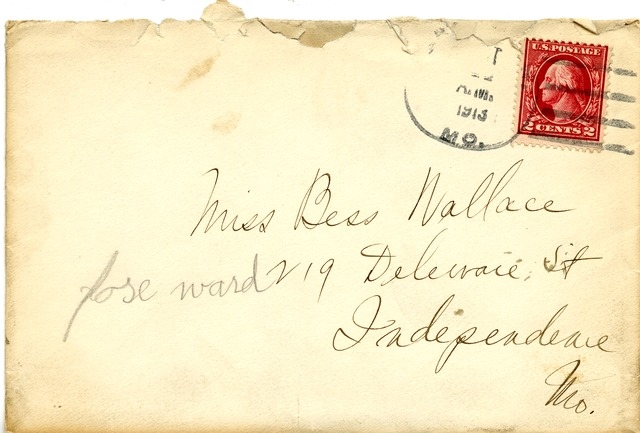 U.S. POSTAGE
2 CENTS 2
A.M.
1913
MO.
Miss Bess Wallace
219 Delewaie, St
Independence
Mo.
fose ward